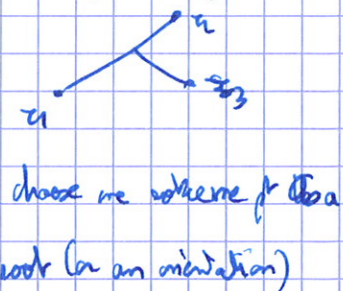 x₂
x₁
x₃
choose one extreme pt as a
root (or an orientation)